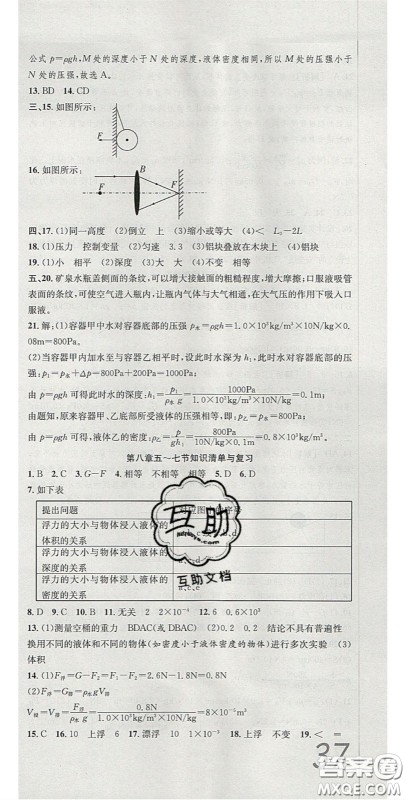 公式 p=ρgh,M处的深度小于N处的深度,液体密度相同,所以M处的压强小于
N处的压强,故选A。
13. BD 14. CD
三、15. 如图所示:
F
16. 如图所示:
B
F
F
四、17. (1)同一高度 (2)倒立 上 (3)缩小或等大 (4)< L₁-2L
18. (1)压力 控制变量 (2)匀速 3.3 (3)铝块叠放在木块上 (4)铝块
19. (1)小 相平 (2)深度 大 大 (4)不变 大 不相等
五、20. 矿泉水瓶盖侧面的条纹,可以增大接触面的粗糙程度,增大摩擦;口服液吸管
表面的条纹,可使空气进入瓶内,让瓶内气体与大气相通,在大气压的作用下吸入口
服液。
21. 解:(1)容器甲中水对容器底部的压强 p=ρgh=1.0×10³kg/m³×10N/kg×
0.08m=800Pa;
(2)当容器甲内加水至与容器乙相平时,设此时水深为h₁,此时甲底部受到水的压
强:p₁=p水+Δp=800Pa+200Pa=1000Pa;
由p=ρgh可得此时水的深度:h₁=p₁/ρ水g=1000Pa/1.0×10³kg/m³×10N/kg=0.1m;
由题知,原来容器甲、乙底部所受液体的压强相等,即p=p水=800Pa,
由p=ρgh可得,液体乙的密度:ρ=p/gh₁=800Pa/10N/kg×0.1m=0.8×10³kg/m³。
第八章五~七节知识清单与复习
1. B 2. C 3. G-F 4. 相等 不相等 相等 5. D 6. D
7. 如下表
提出问题
浮力的大小与物体浸入液体的
体积的关系
浮力的大小与物体浸入液体的
深度的关系
a、c、d
a、c、e
互助
互助文档
8. D 9. C 10. B 11. 无关 2 2×10⁻⁴ 12. 6 0.6×10³
13. (1)测量空桶的重力 BDAC(或DBAC) (2)0.2 0.2 结论不具有普遍性
换用不同的液体和不同的物体(如密度小于液体密度的物体)进行多次实验 (3)
体积
14. (1)F浮=G-F=F₁-F₂=2.6N-1.8N=0.8N
(2)F浮=G排=ρ水gV排
V物=V排=F浮/ρ水g=0.8N/1.0×10³kg/m³×10N/kg=8×10⁻⁵m³
15. C 16. 10 上浮 17. 漂浮 1×10⁻³ 18. 上浮 不变 19. < =
37
答案圈
MXQE.COM